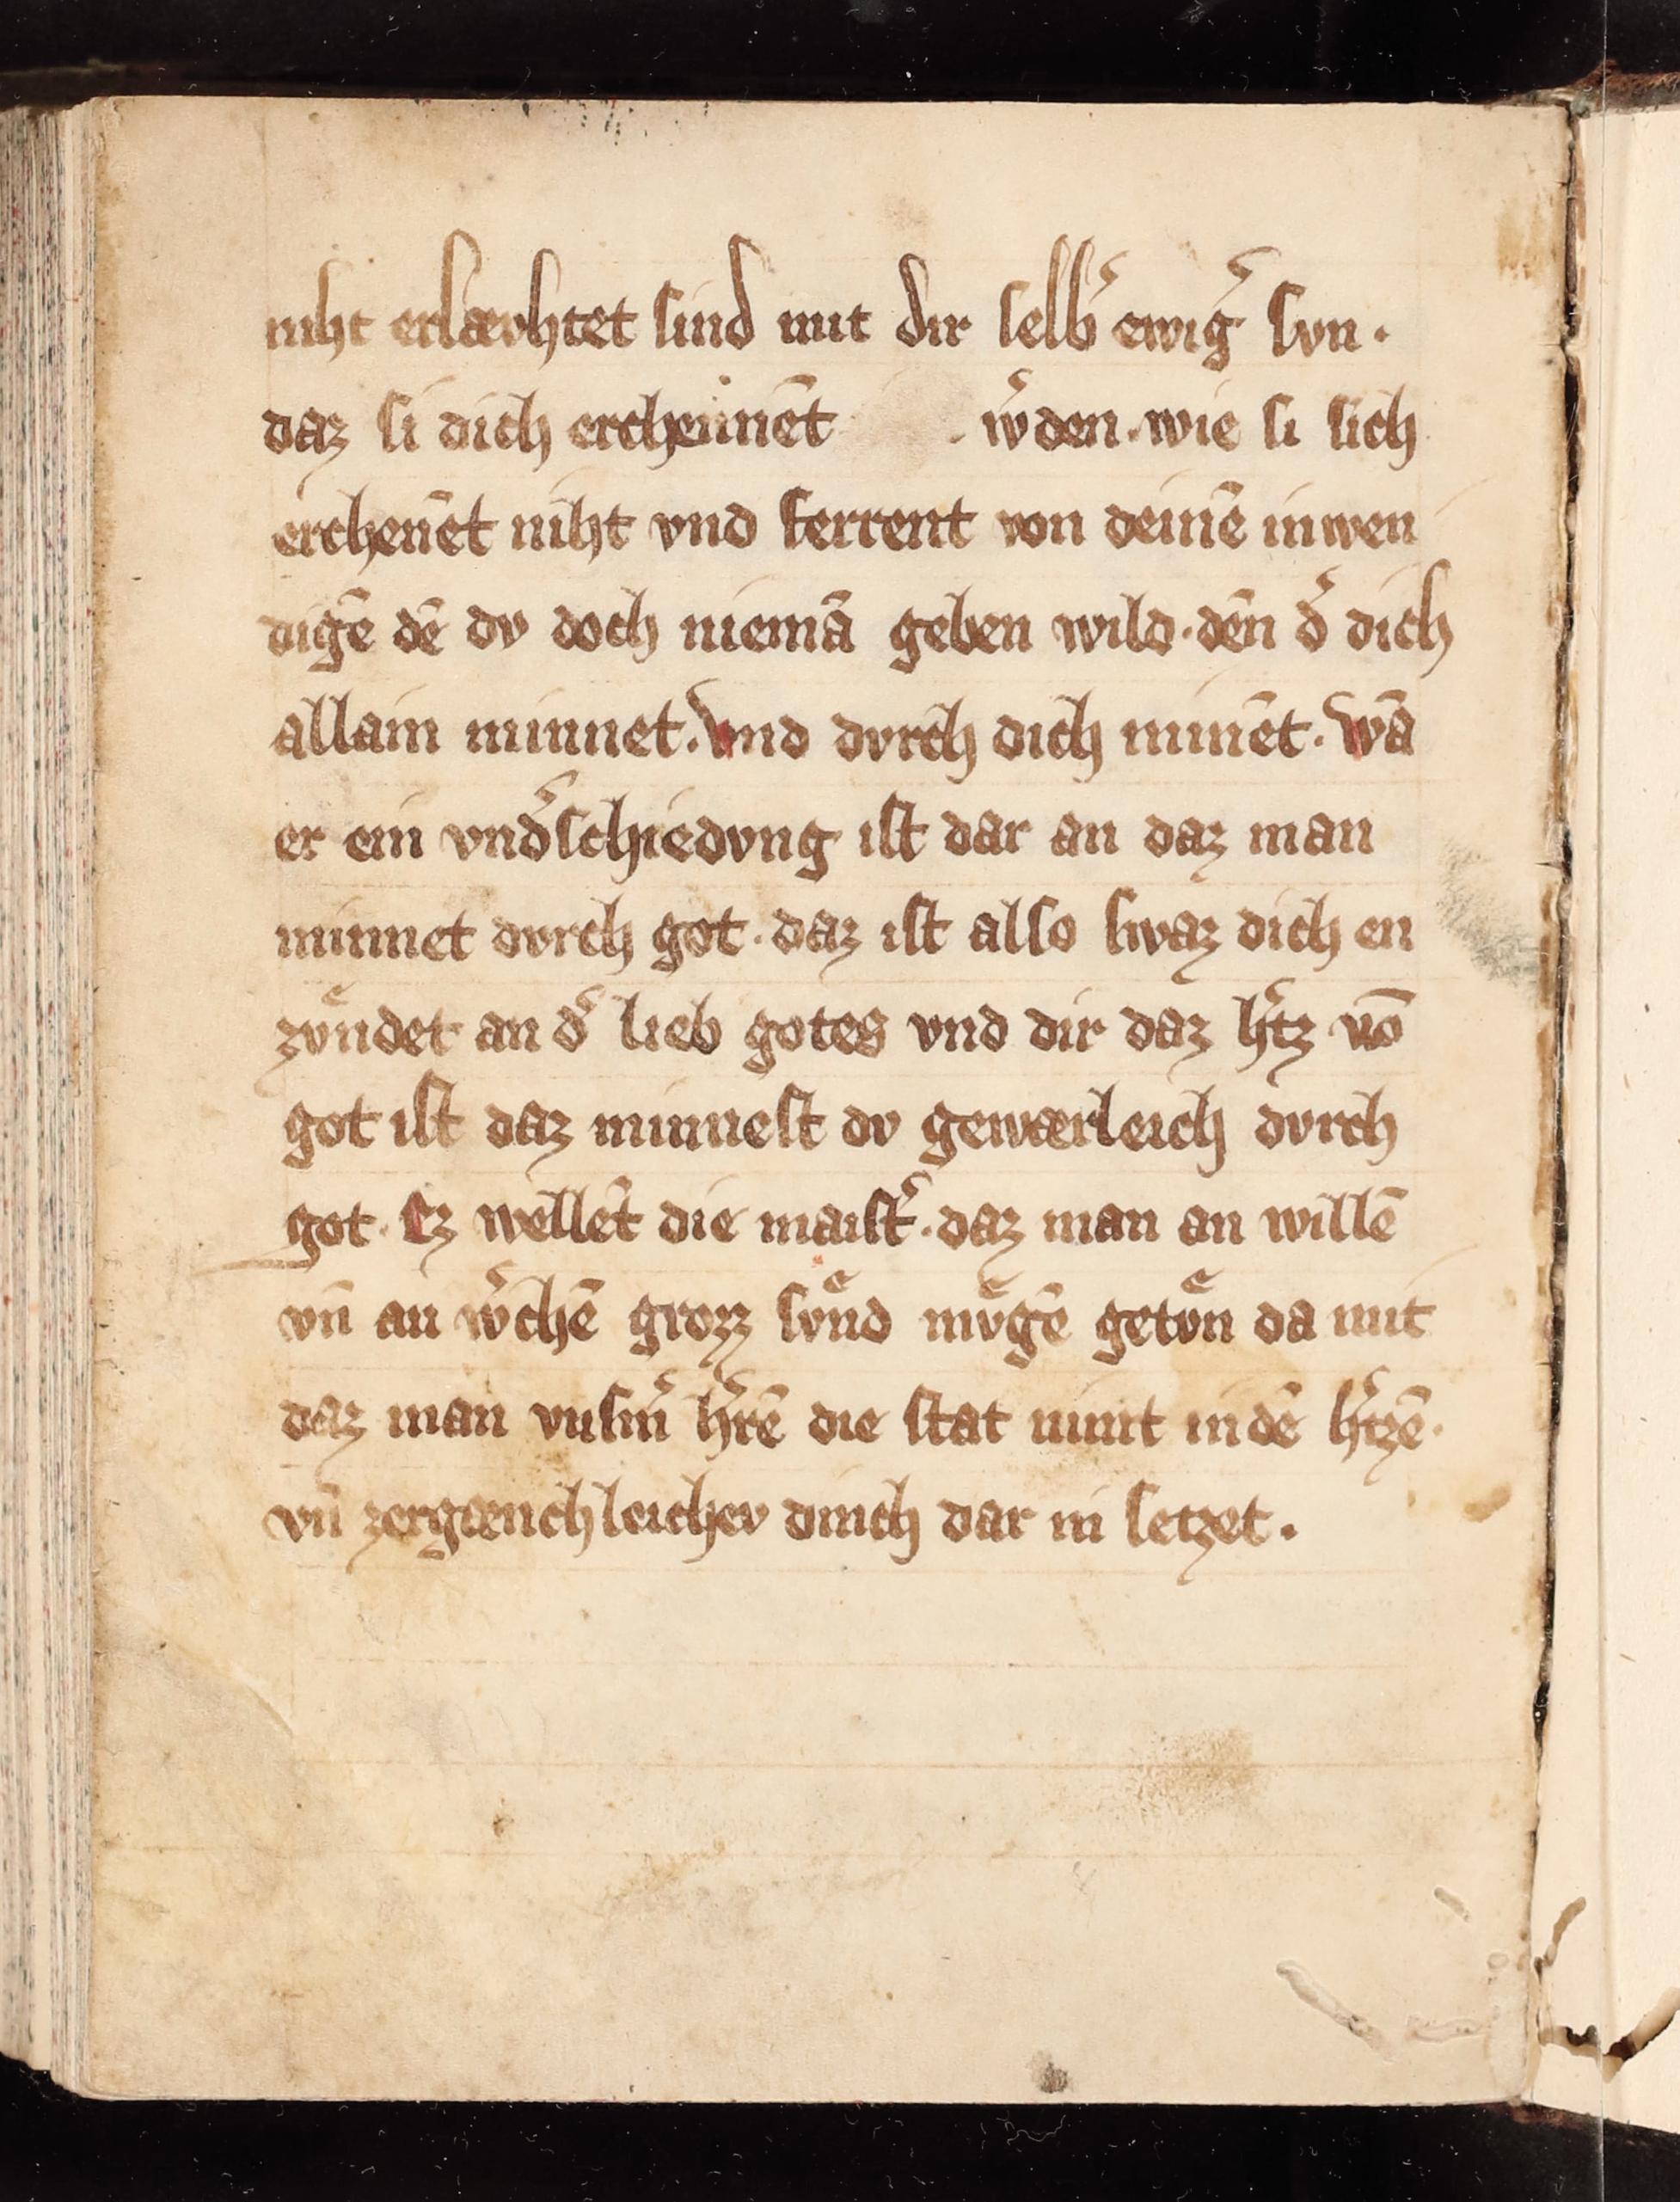 niht erlævhtet sind mit dir selb͛ ewig͛ svn.
daz si dich erchennēt . w͛den. wie si sich
erchenēt niht vnd ferrent von deinē inwen
digē dē dv doch niemā geben wild. dēn d͛ dich
allain minnet. Vnd dvrch dich minēt. Wā
er ein vnd͛schiedvng ist dar an daz man
minnet dvrch got. daz ist also swaz dich en
zvͤndet an d͛ lieb gotes vnd dir daz h͛tz vō
got ist daz minnest dv gewærleich dvrch
got. Ez wellēt die maist͛. daz man an willē
vn̄ an w͛chē grozz svͤnd mvͤgē getvͤn da mit
daz man vnsm̄ h͛rē die stat nimt in dē h͛tzē.
vn̄ zergænchleichev dinch dar in setzet.